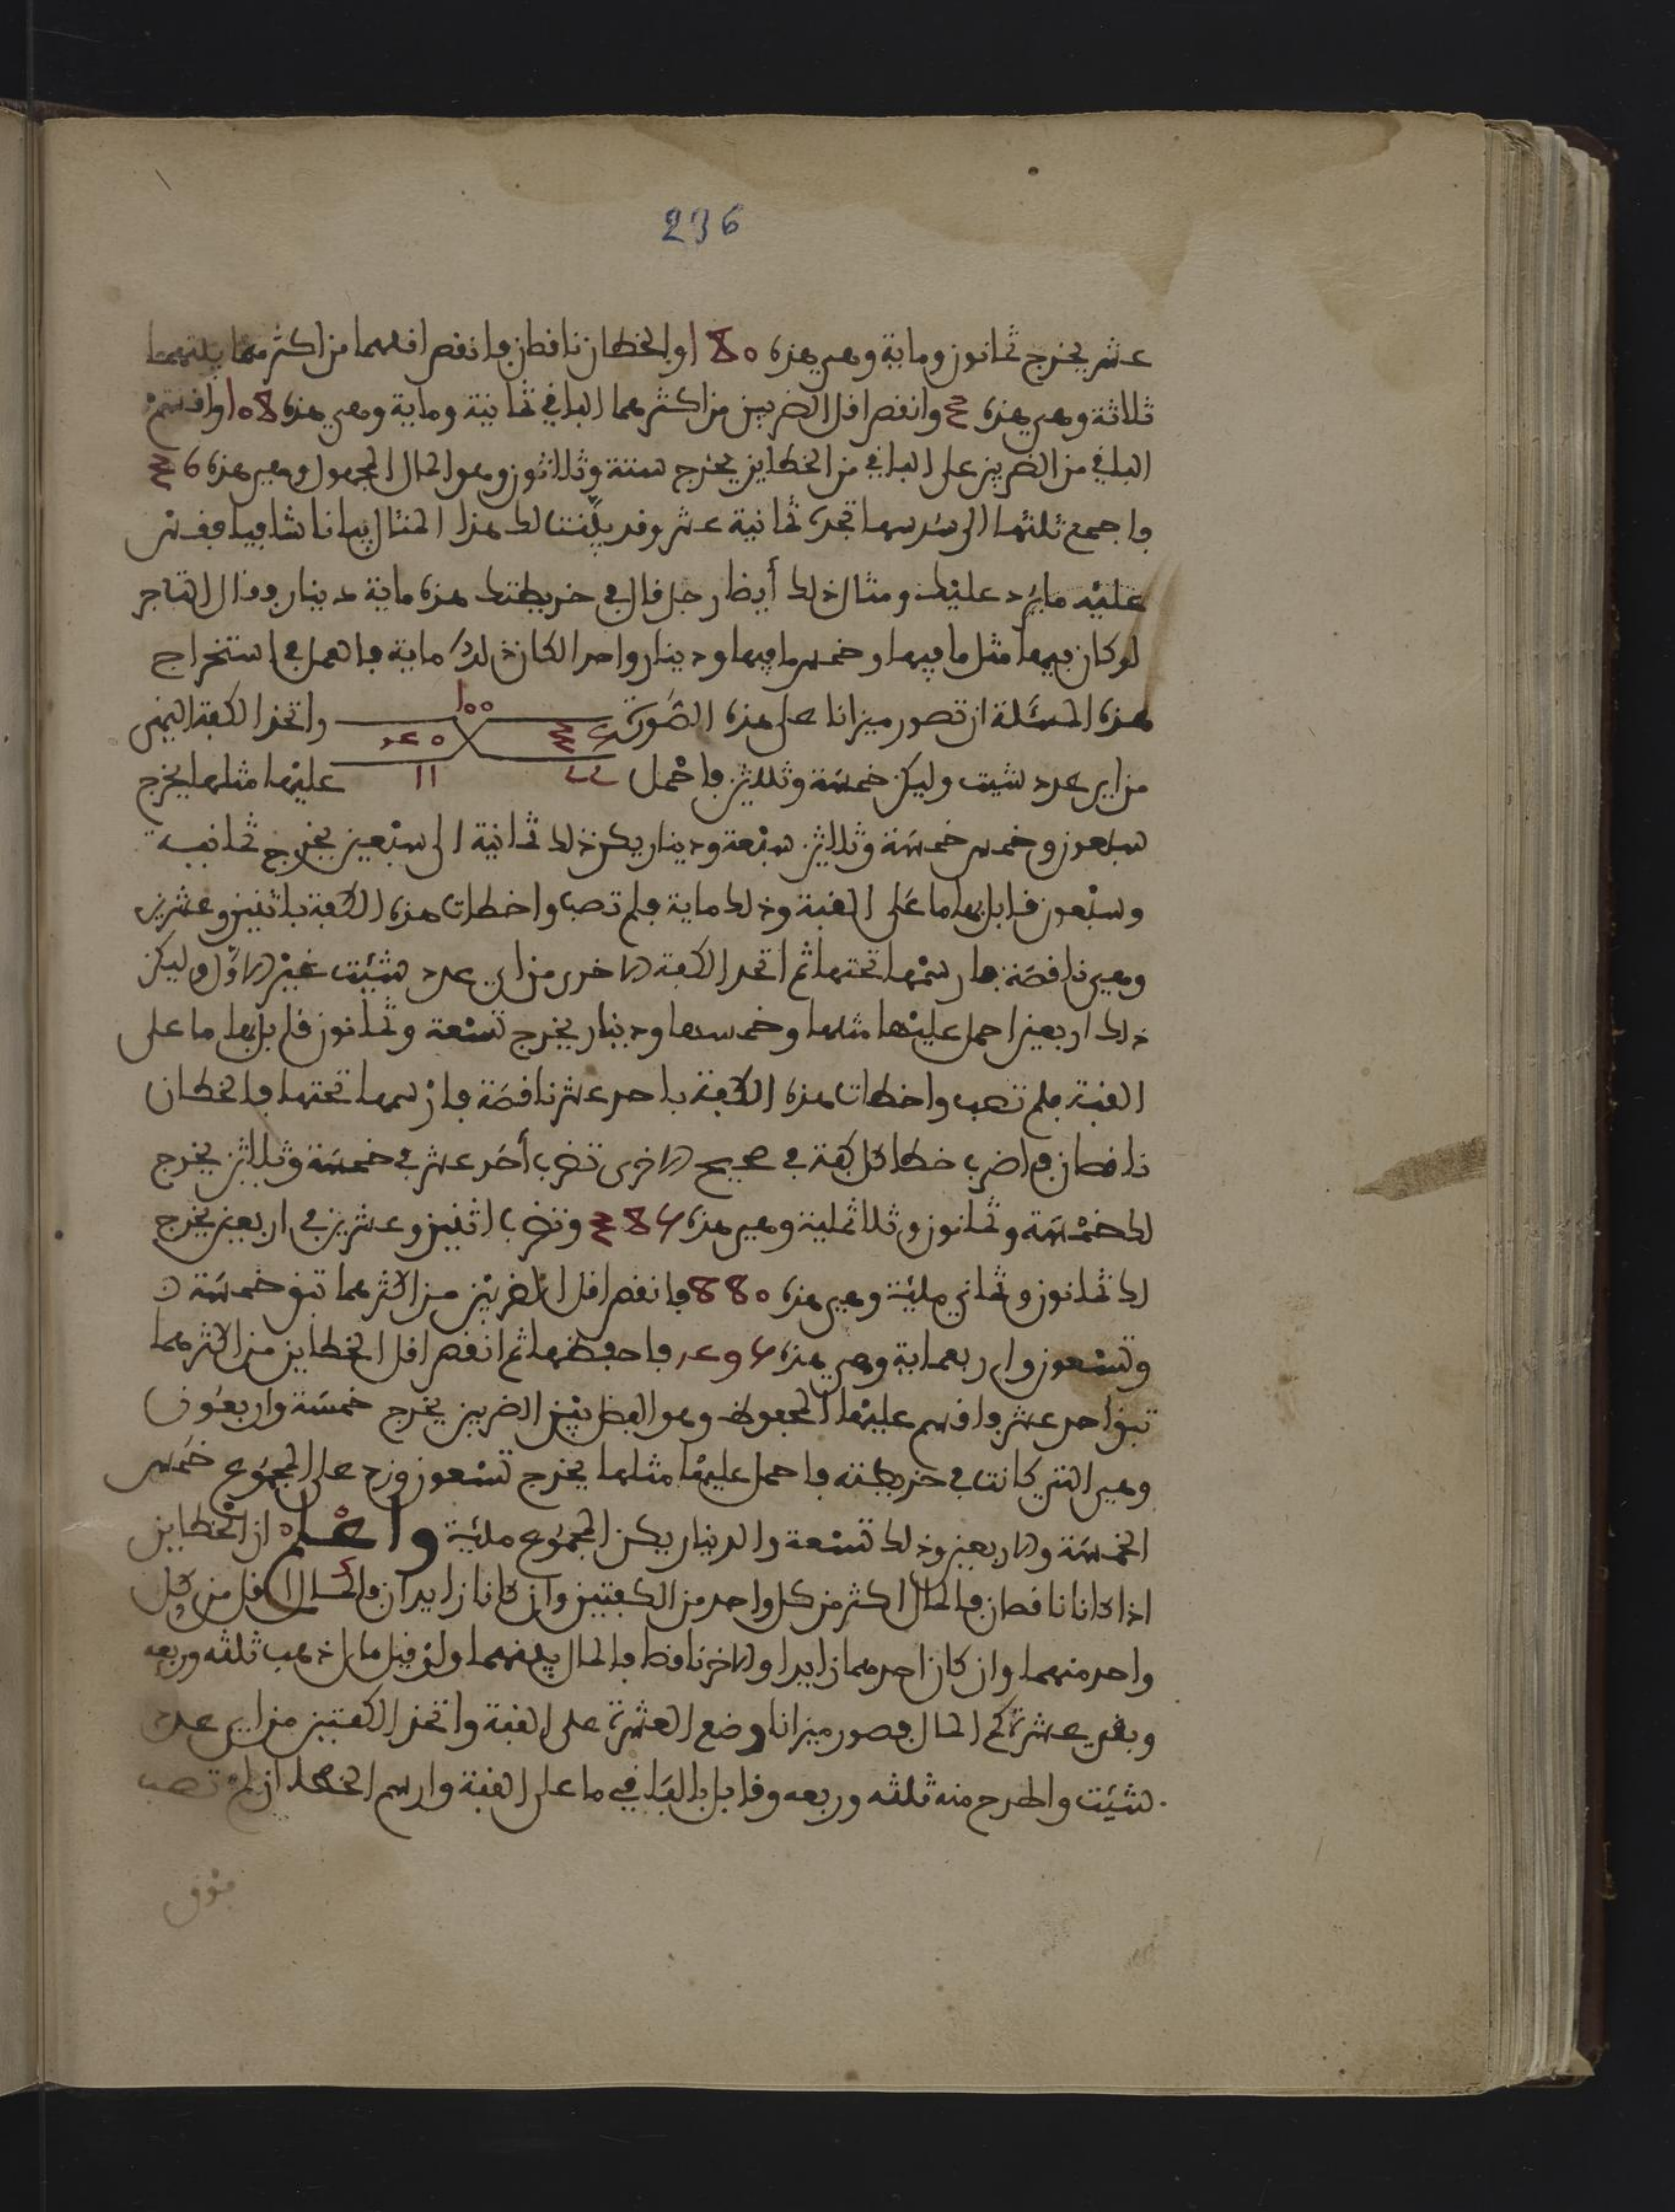 236
عشر يخرج ثمانون وماية وهي هذه 180 والخطان ناقصان فانقص اقلهما من اكثرهما يبقى
ثلاثة وهي هذه 3 وانقص اقل الضربين من اكثرهما الباقي ثمانية وماية وهي هذه 108 واقسم
الباقي من الضربين على الباقي من الخطاين يخرج ستة وثلاثون وهو المال المجهول وهي هذه 36
فاجمع ثلثها الى سدسها تجده ثمانية عشر وقد بيّنت لك هذا المثال بيانا شافيا فقس
عليه ما يرد عليك ومثال ذلك أيضا رجل قال في خريطتك هذه ماية دينار فقال التاجر
لو كان فيها مثل ما فيها وخمس ما فيها ودينار واحد لكان ذلك ماية فالعمل في استخراج
هذه المسئلة ان تصور ميزانا على هذه الصورة 100 35 40 22 11 واتخذ الكفة اليمنى
من اي عدد شيت وليكن خمسة وثلاثين فاحمل عليها مثلها يخرج
سبعون وخمس خمسة وثلاثين سبعة ودينار يكن ذلك ثمانية الى سبعين يخرج ثمانية
وسبعون قابل بها ما على القبة وذلك ماية فلم تصب واخطات هذه الكفة باثنين وعشرين
وهي ناقصة فارسمها تحتها ثم اتخذ الكفة الاخرى من اي عدد شيت غير الاول وليكن
ذلك اربعين احمل عليها مثلها وخمسها ودينار يخرج تسعة وثمانون قابل بها ما على
القبة فلم تصب واخطات هذه الكفة باحد عشر ناقصة فارسمها تحتها فالخطان
ناقصان فاضرب خطا كل كفة في صحيح الاخرى تضرب أحد عشر في خمسة وثلاثين يخرج
لك خمسة وثمانون وثلاثماية وهي هذه 385 وتضرب اثنين وعشرين في اربعين يخرج
لك ثمانون وثماني ماية وهي هذه 880 فانقص اقل الضربين من اكثرهما تبق خمسة
وتسعون واربعماية وهي هذه 495 فاحفظها ثم انقص اقل الخطاين من اكثرهما
تبق احد عشر فاقسم عليها المحفوظ وهو الفضل بين الضربين يخرج خمسة واربعون
وهي التي كانت في خريطته فاحمل عليها مثلها يخرج تسعون وزد على المجموع خمس
الخمسة والاربعين وذلك تسعة والدينار يكن المجموع ماية واعلم ان الخطاين
اذا كانا ناقصان فالمال اكثر من كل واحد من الكفتين وان كانا زايدان فالمال اقل من كل
واحد منهما وان كان احدهما زايدا والاخر ناقصا فالمال بينهما ولو قيل مال ذهب ثلثه وربعه
وبقي عشرة كم المال فصور ميزانا وضع العشرة على القبة واتخذ الكفتين من اي عدد
شيت واطرح منه ثلثه وربعه وقابل بالباقي ما على القبة وارسم الخطا ان لم تصب
فوق